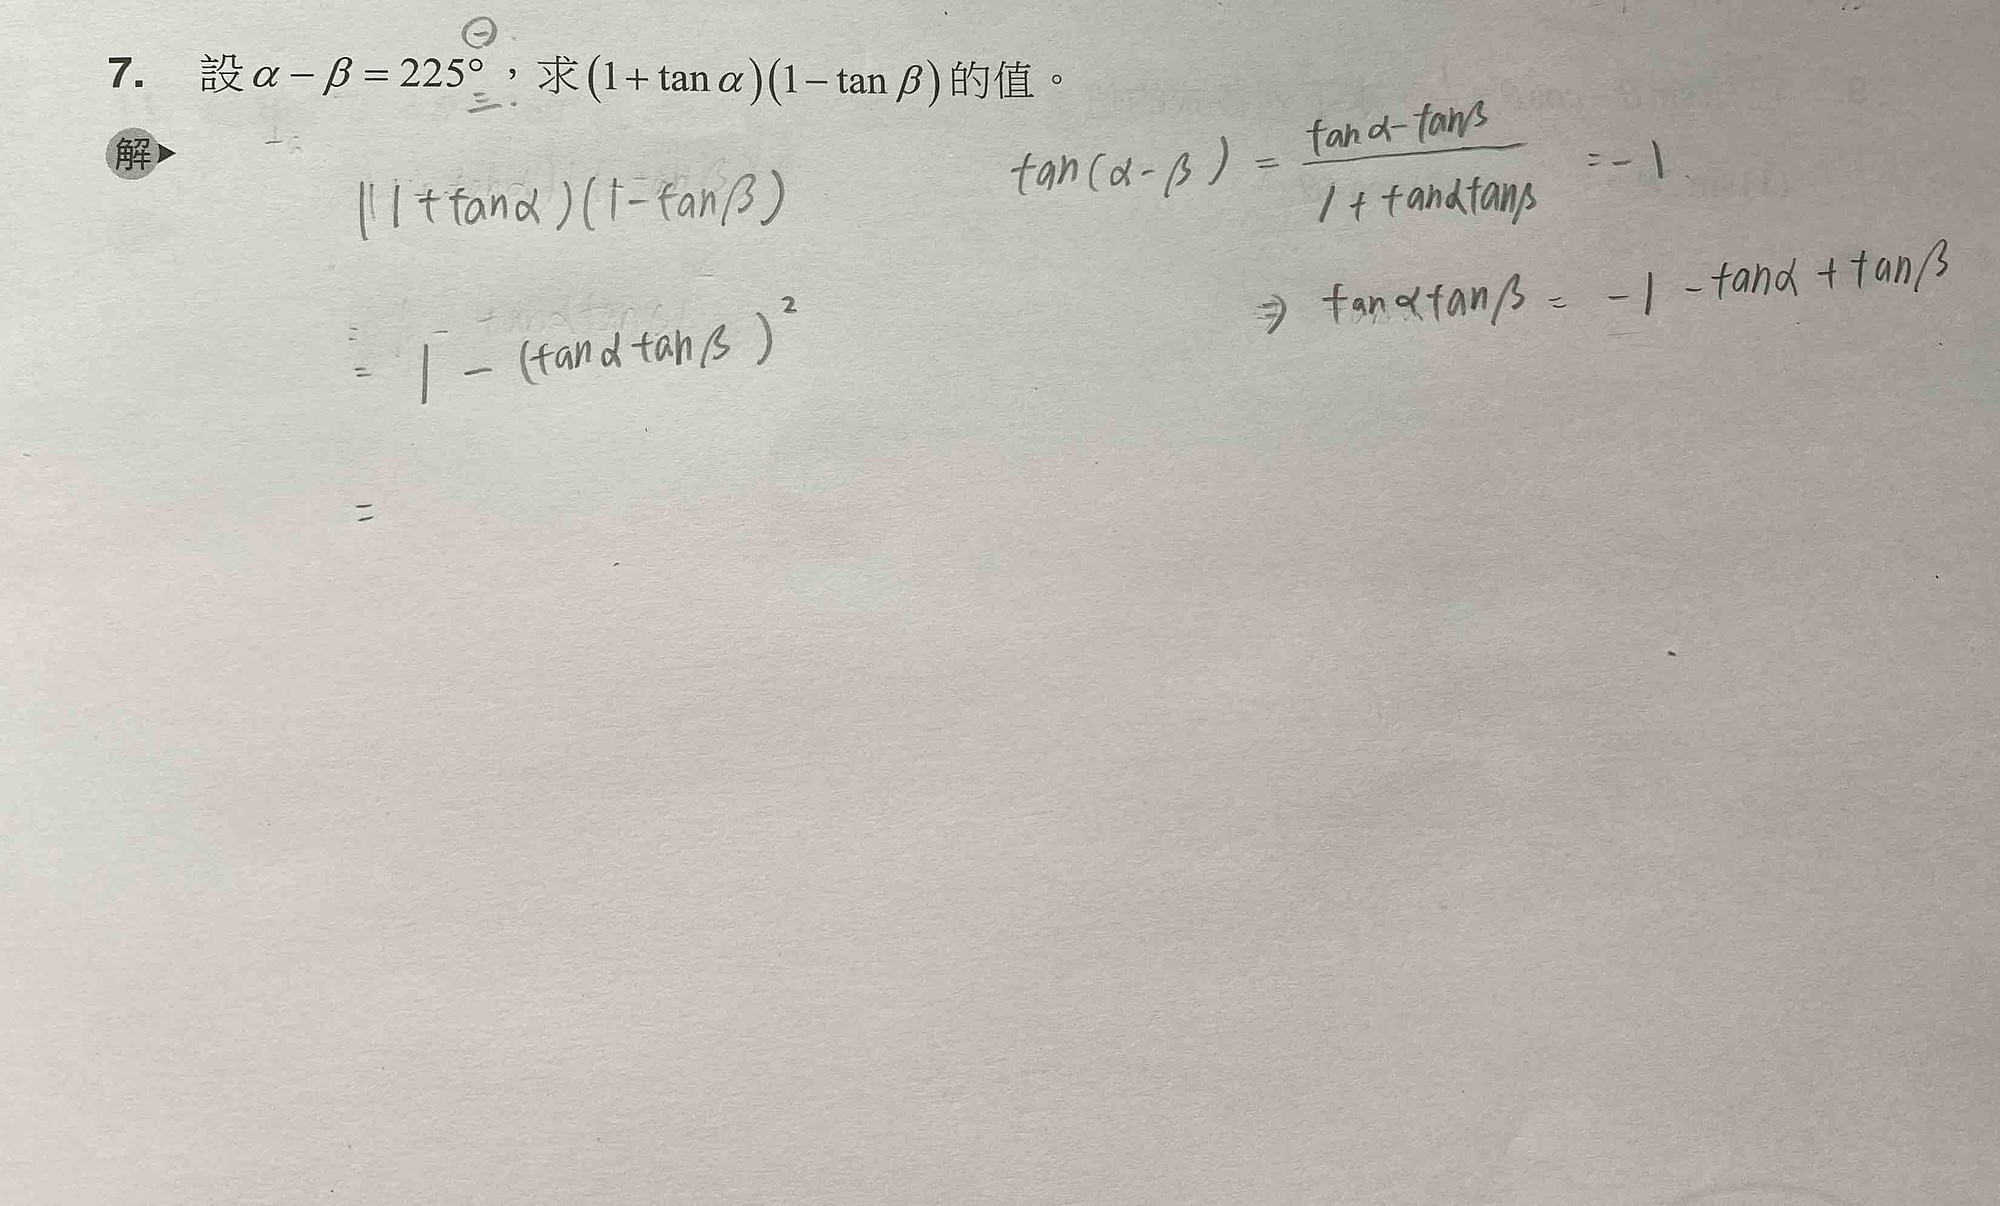 ㊀
7. 設 α − β = 225°,求 (1 + tan α)(1 − tan β) 的值。
三.
解▶
(1 + tanα)(1 − tanβ)
tan(α − β) = (tanα − tanβ) / (1 + tanαtanβ) = −1.
= 1 − (tanα tanβ)²
⇒ tanαtanβ = −1 − tanα + tanβ
=